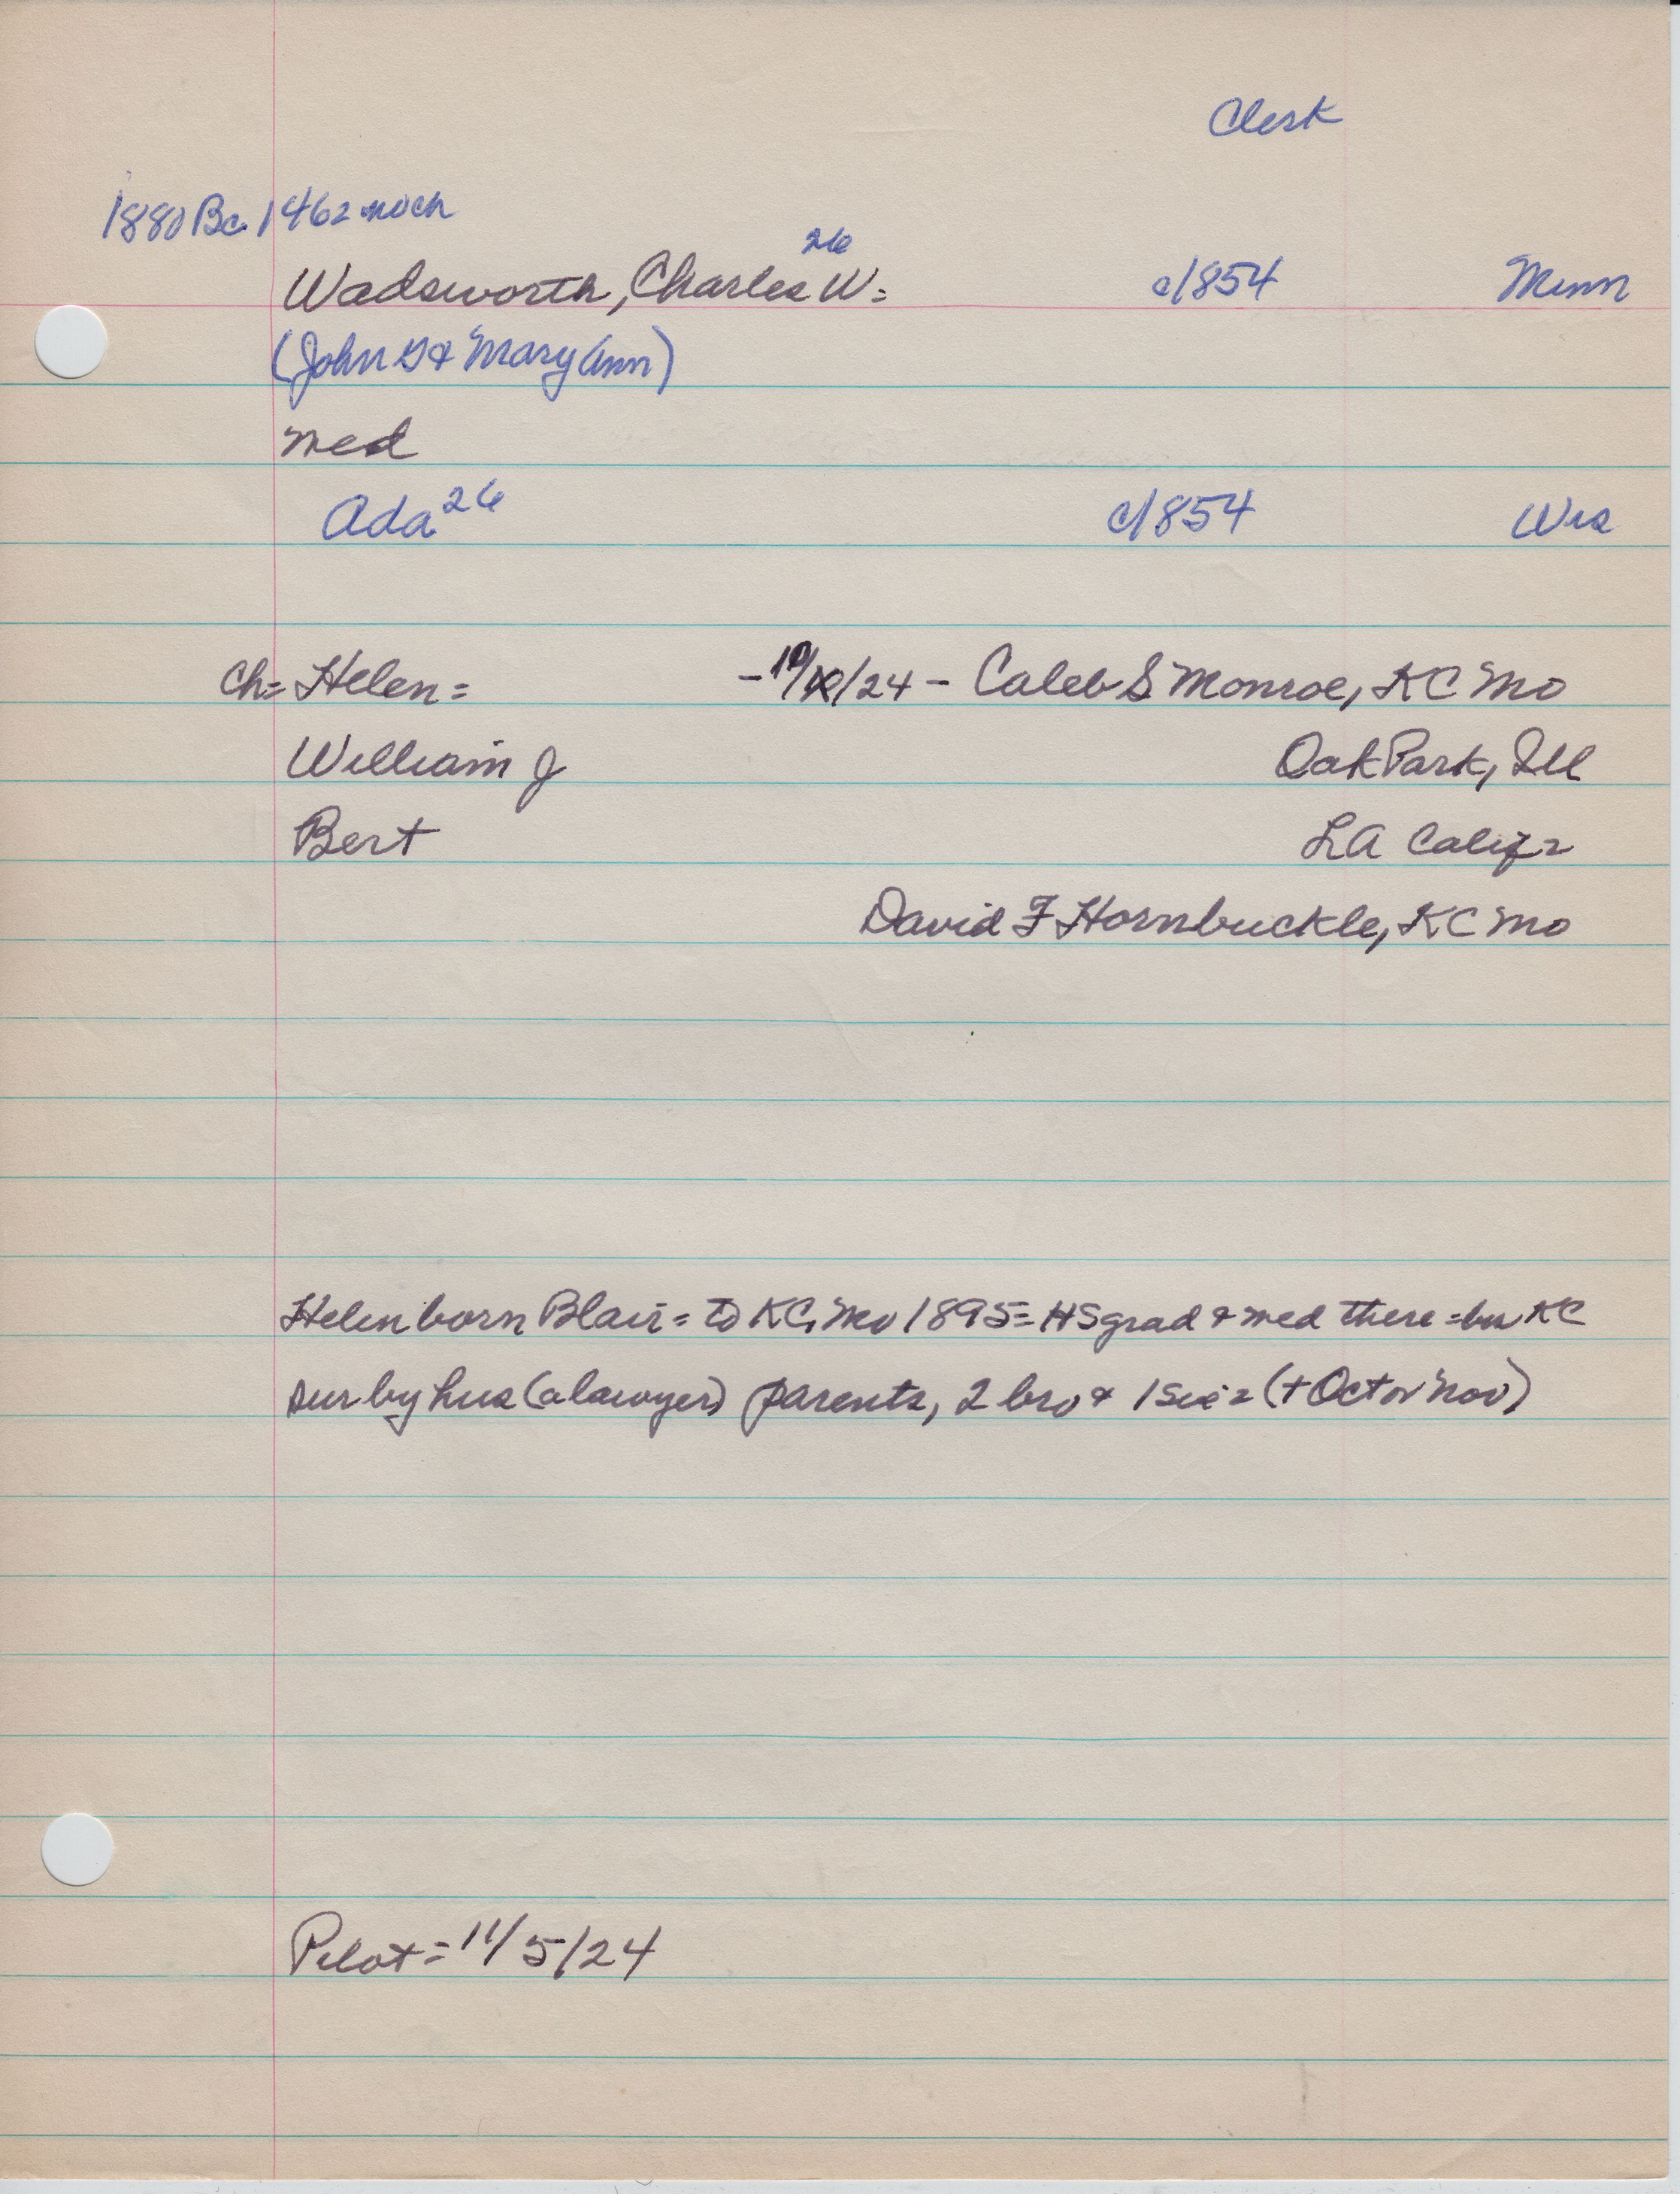 Clerk
1880 Bc 1462 no ch
Wadsworth, Charles 26 W= c1854 Minn
(John G & Mary Ann)
med
Ada 26 c1854 Wis
ch= Helen= -10/24- Caleb S Monroe, KC Mo
William J Oak Park, Ill
Bert LA Calif=
David F Hornbuckle, KC Mo
Helen born Blair= to KC, Mo 1895= HS grad & med there = bu KC
sur by hus (a lawyer) parents, 2 bro & 1 sis= (+ Oct or Nov)
Pilot= 11/5/24